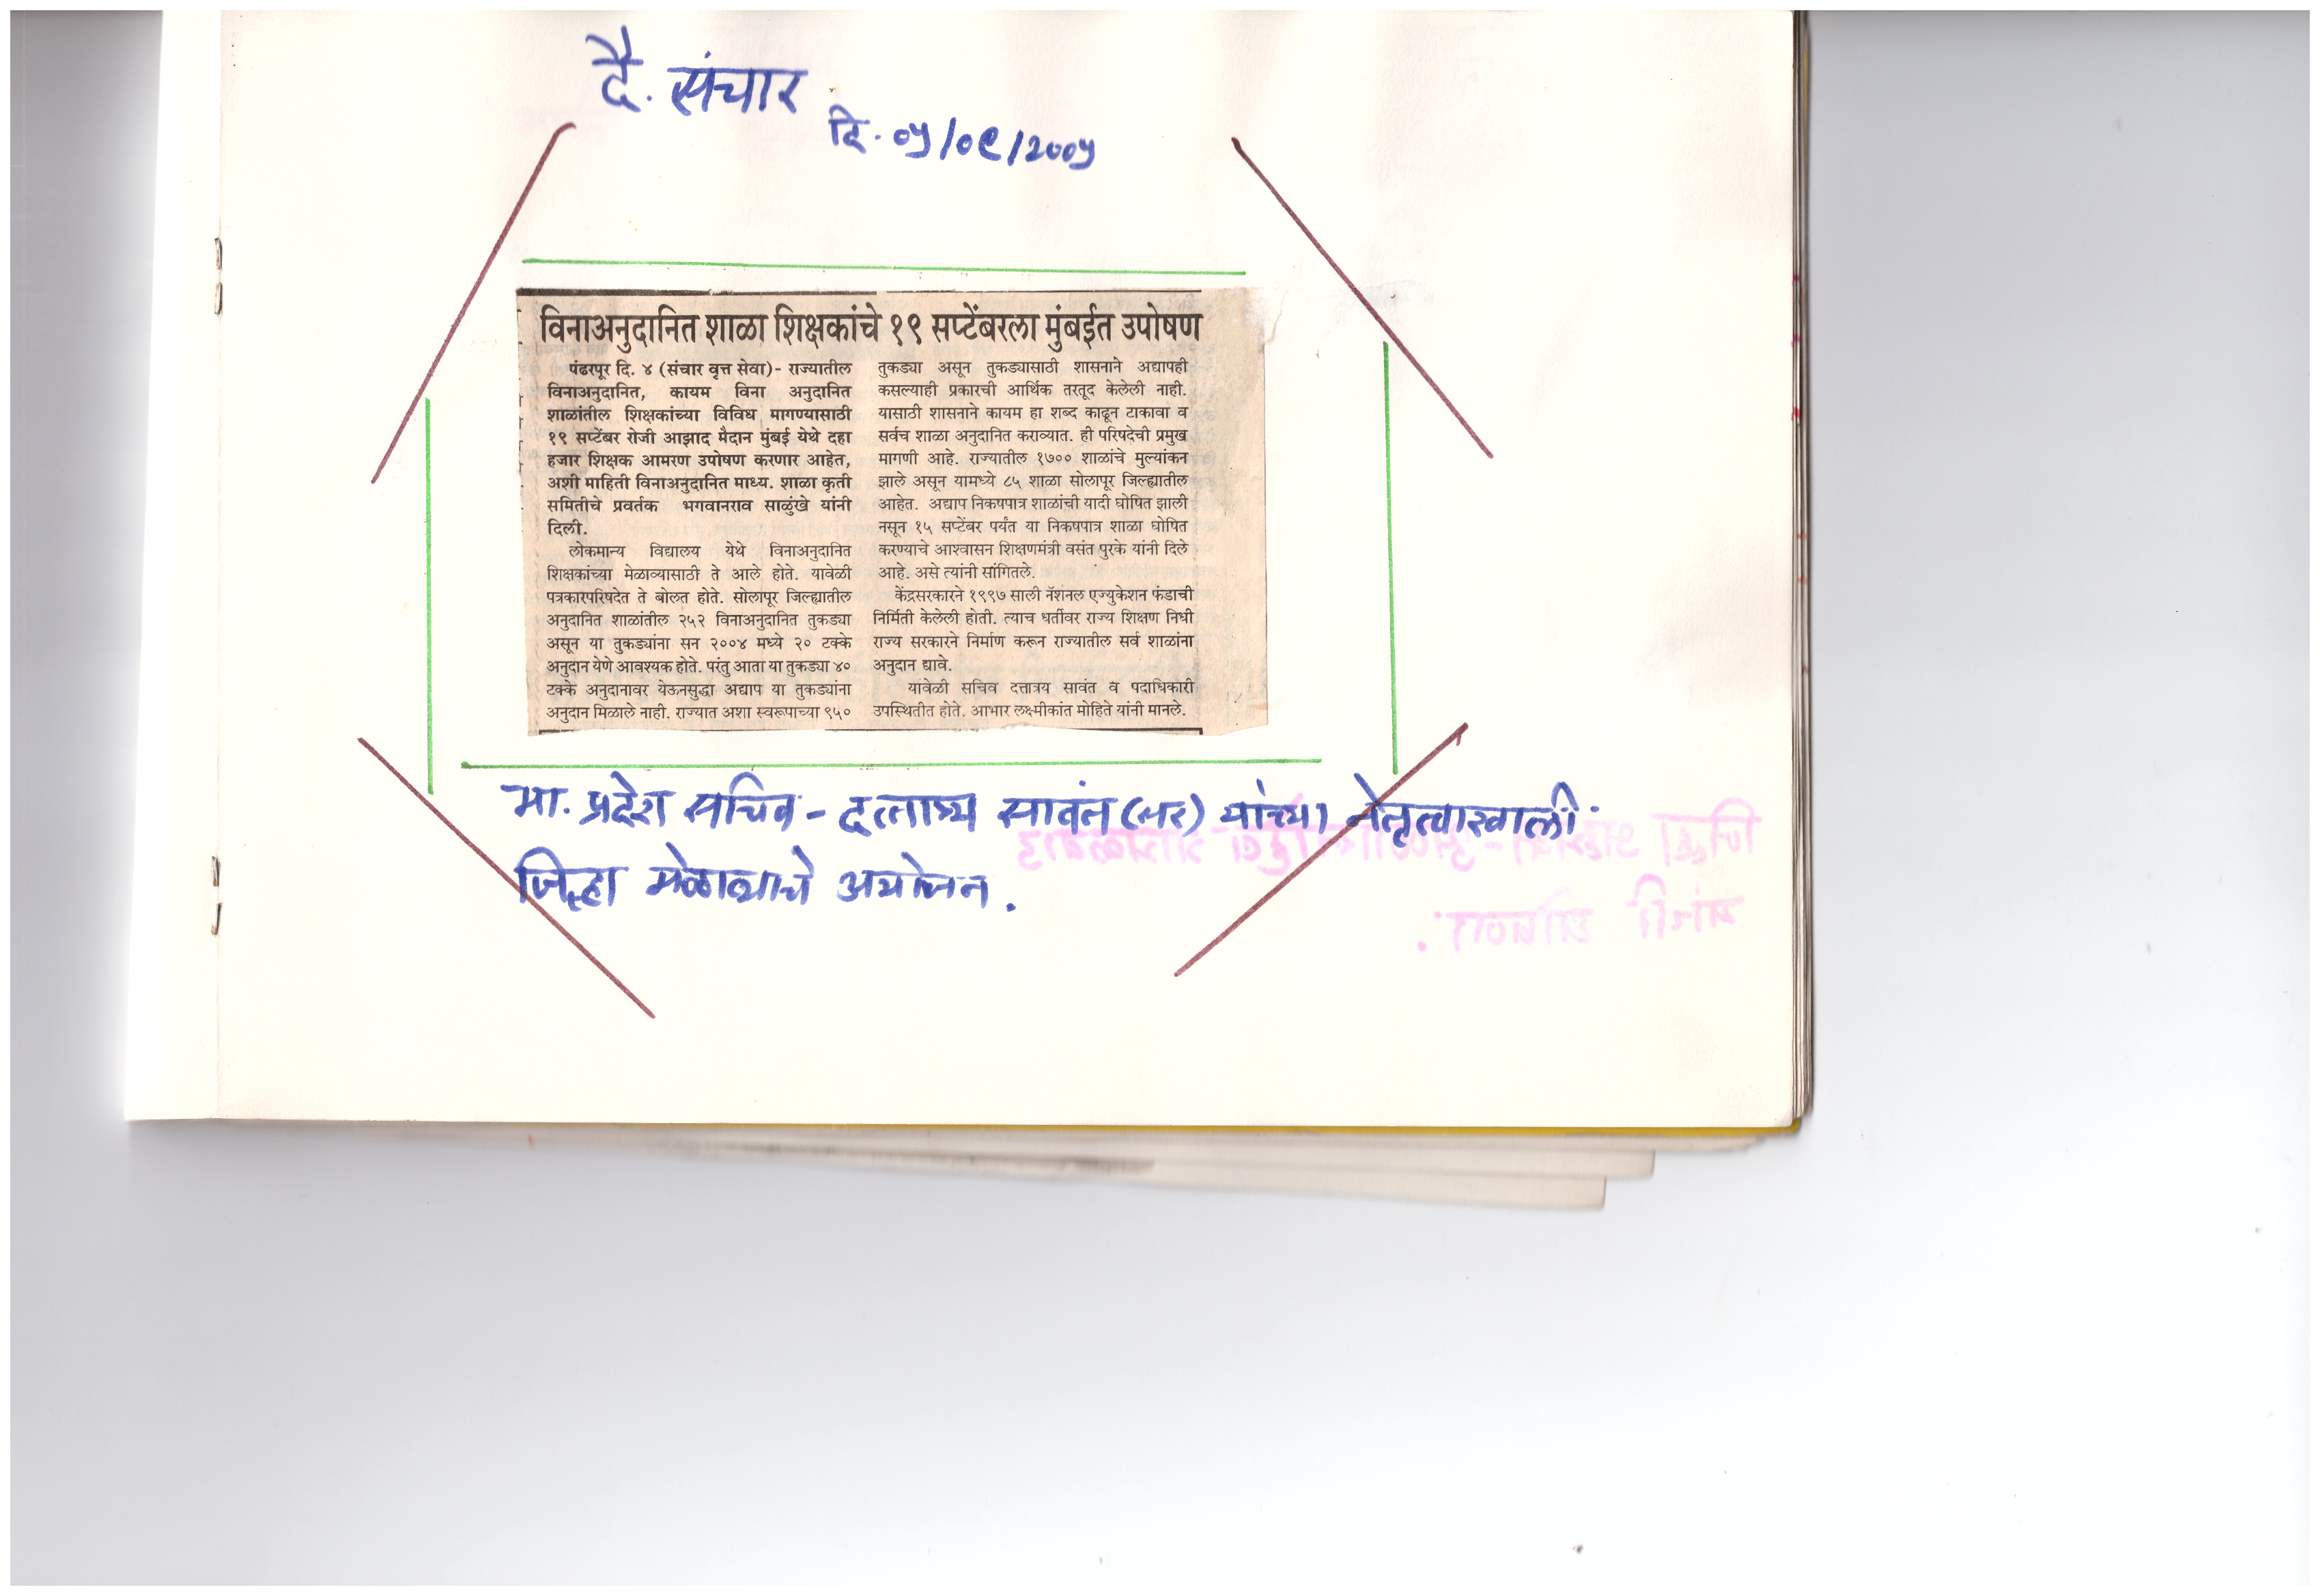 दै. संचार
दि. ०५/०९/२००५
विनाअनुदानित शाळा शिक्षकांचे १९ सप्टेंबरला मुंबईत उपोषण
पंढरपूर दि. ४ (संचार वृत्त सेवा)- राज्यातील
विनाअनुदानित, कायम विना अनुदानित
शाळांतील शिक्षकांच्या विविध मागण्यासाठी
१९ सप्टेंबर रोजी आझाद मैदान मुंबई येथे दहा
हजार शिक्षक आमरण उपोषण करणार आहेत,
अशी माहिती विनाअनुदानित माध्य. शाळा कृती
समितीचे प्रवर्तक भगवानराव साळुंखे यांनी
दिली.
लोकमान्य विद्यालय येथे विनाअनुदानित
शिक्षकांच्या मेळाव्यासाठी ते आले होते. यावेळी
पत्रकारपरिषदेत ते बोलत होते. सोलापूर जिल्ह्यातील
अनुदानित शाळांतील २५२ विनाअनुदानित तुकड्या
असून या तुकड्यांना सन २००४ मध्ये २० टक्के
अनुदान येणे आवश्यक होते. परंतु आता या तुकड्या ४०
टक्के अनुदानावर येऊनसुद्धा अद्याप या तुकड्यांना
अनुदान मिळाले नाही. राज्यात अशा स्वरूपाच्या ९५०
तुकड्या असून तुकड्यासाठी शासनाने अद्यापही
कसल्याही प्रकारची आर्थिक तरतूद केलेली नाही.
यासाठी शासनाने कायम हा शब्द काढून टाकावा व
सर्वच शाळा अनुदानित कराव्यात. ही परिषदेची प्रमुख
मागणी आहे. राज्यातील १७०० शाळांचे मुल्यांकन
झाले असून यामध्ये ८५ शाळा सोलापूर जिल्ह्यातील
आहेत. अद्याप निकषपात्र शाळांची यादी घोषित झाली
नसून १५ सप्टेंबर पर्यंत या निकषपात्र शाळा घोषित
करण्याचे आश्वासन शिक्षणमंत्री वसंत पुरके यांनी दिले
आहे. असे त्यांनी सांगितले.
केंद्रसरकारने १९९७ साली नॅशनल एज्युकेशन फंडाची
निर्मिती केलेली होती. त्याच धर्तीवर राज्य शिक्षण निधी
राज्य सरकारने निर्माण करून राज्यातील सर्व शाळांना
अनुदान द्यावे.
यावेळी सचिव दत्तात्रय सावंत व पदाधिकारी
उपस्थितीत होते. आभार लक्ष्मीकांत मोहिते यांनी मानले.
मा. प्रदेश सचिव - दत्तात्र्य सावंत (सर) यांच्या नेतृत्वाखाली
जिल्हा मेळाव्याचे अयोजन.